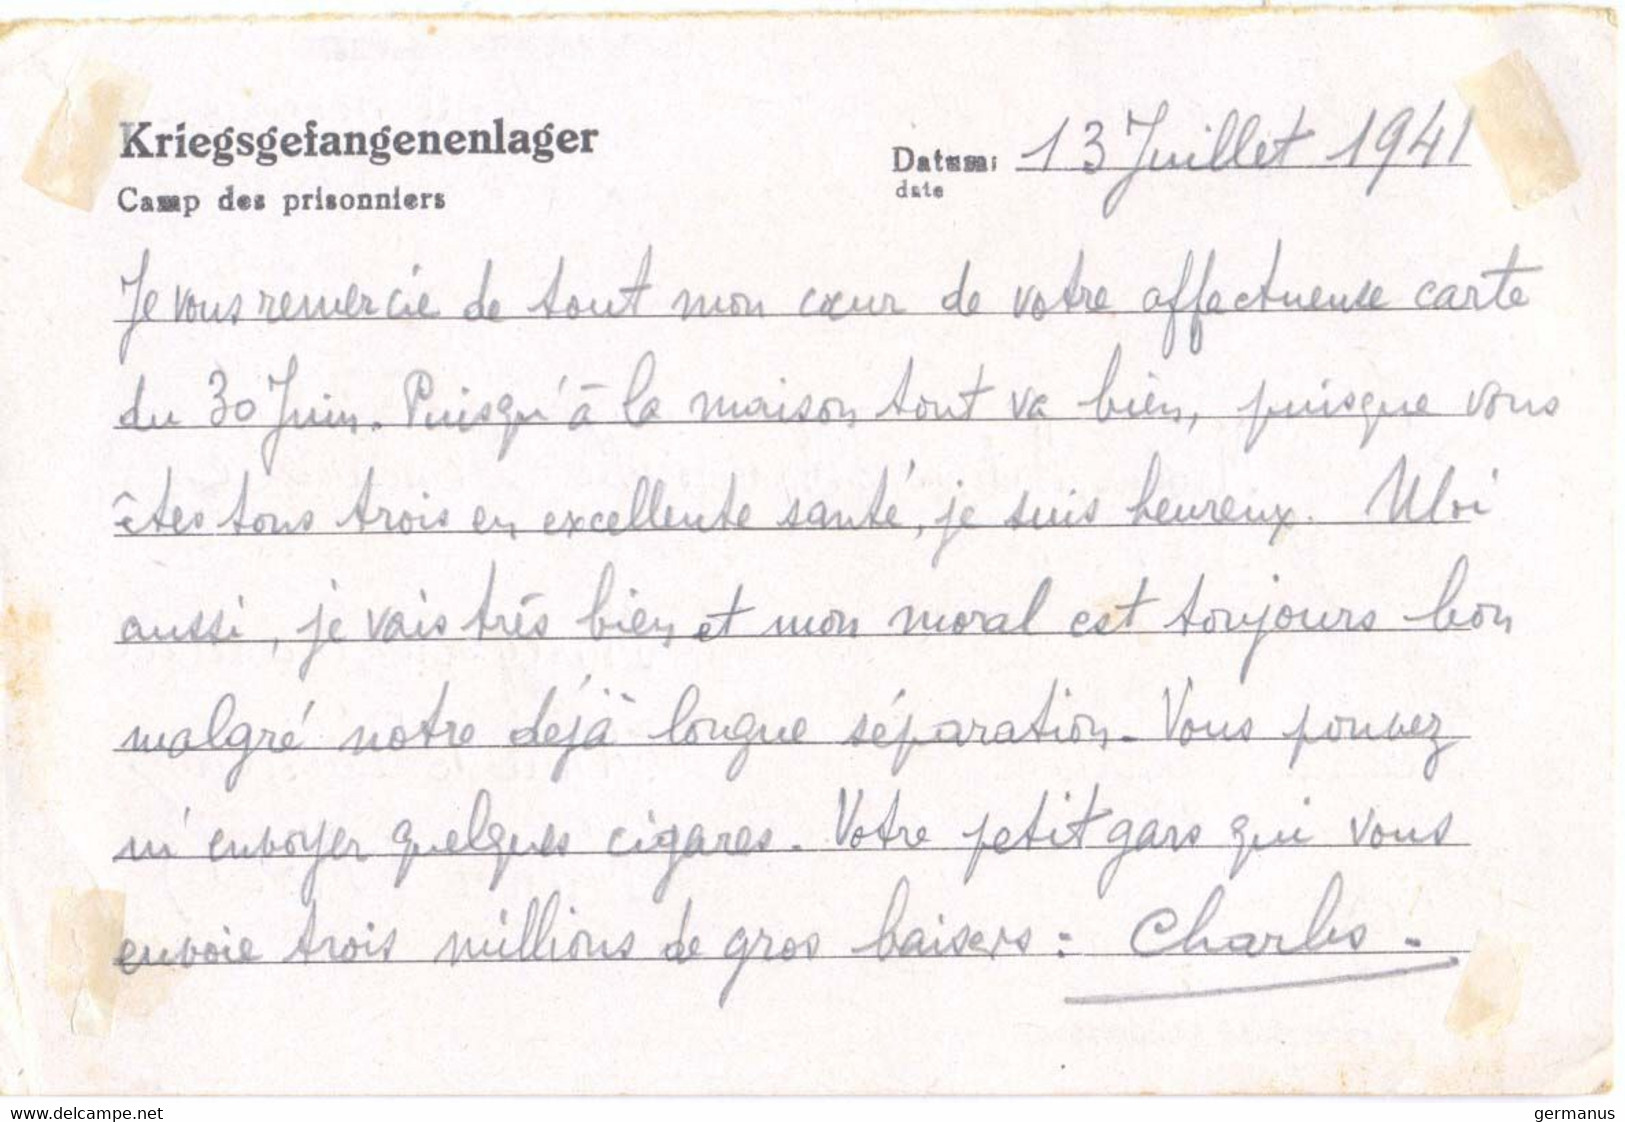 Kriegsgefangenenlager
Camp des prisonniers
Datum: 13 Juillet 1941
date
Je vous remercie de tout mon cœur de votre affectueuse carte
du 30 Juin. Puisqu'à la maison tout va bien, puisque vous
êtes tous trois en excellente santé, je suis heureux. Moi
aussi, je vais très bien et mon moral est toujours bon
malgré notre déjà longue séparation. Vous pouvez
m'envoyer quelques cigares. Votre petit gars qui vous
envoie trois millions de gros baisers : Charles.
www.delcampe.net
germanus